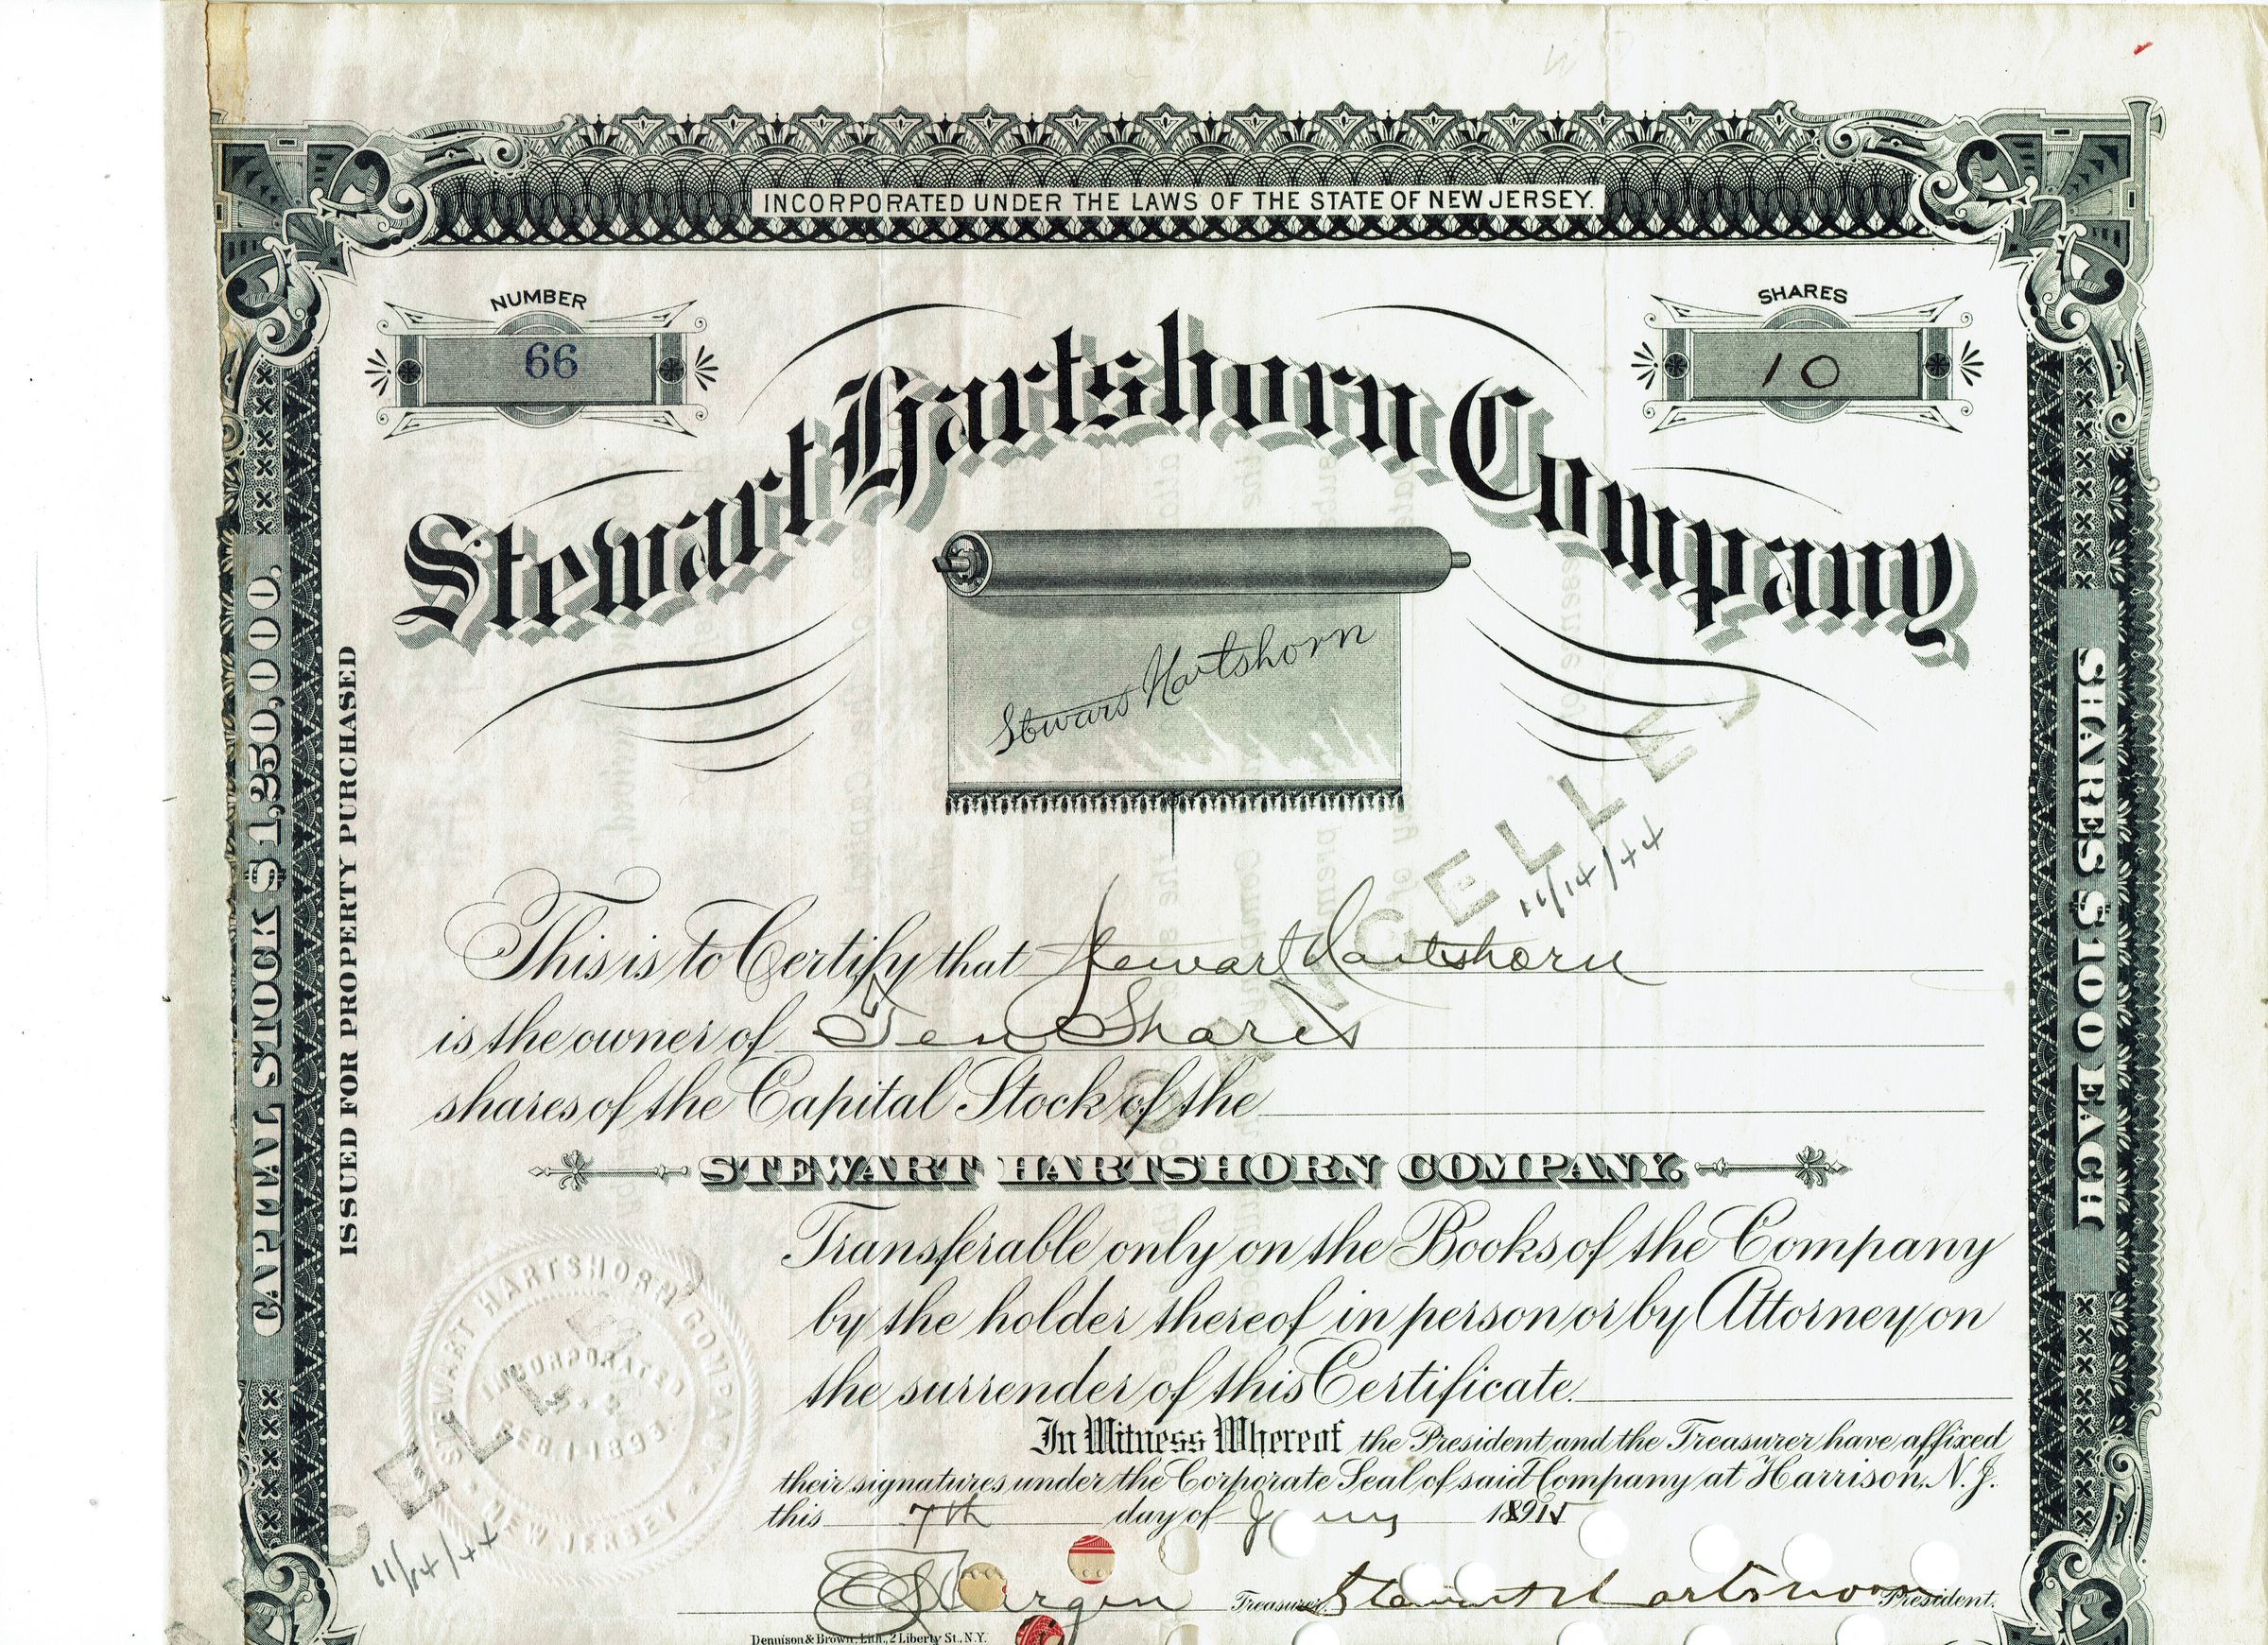 INCORPORATED UNDER THE LAWS OF THE STATE OF NEW JERSEY.
NUMBER
66
SHARES
10
Stewart Hartshorn Company
Stewart Hartshorn
CAPITAL STOCK $1,250,000.
ISSUED FOR PROPERTY PURCHASED
SHARES $100 EACH
CANCELLED
11/14/44
This is to Certify that Stewart Hartshorn
is the owner of Ten Shares
shares of the Capital Stock of the
STEWART HARTSHORN COMPANY.
Transferable only on the Books of the Company
by the holder thereof in person or by Attorney on
the surrender of this Certificate.
In Witness Whereof the President and the Treasurer have affixed
their signatures under the Corporate Seal of said Company at Harrison, N.J.
this 7th day of 189
STEWART HARTSHORN COMPANY
INCORPORATED
NEW JERSEY
11/14/44
Treasurer. Stewart Hartshorn President.
Dennison & Brown, Lith., 2 Liberty St., N.Y.